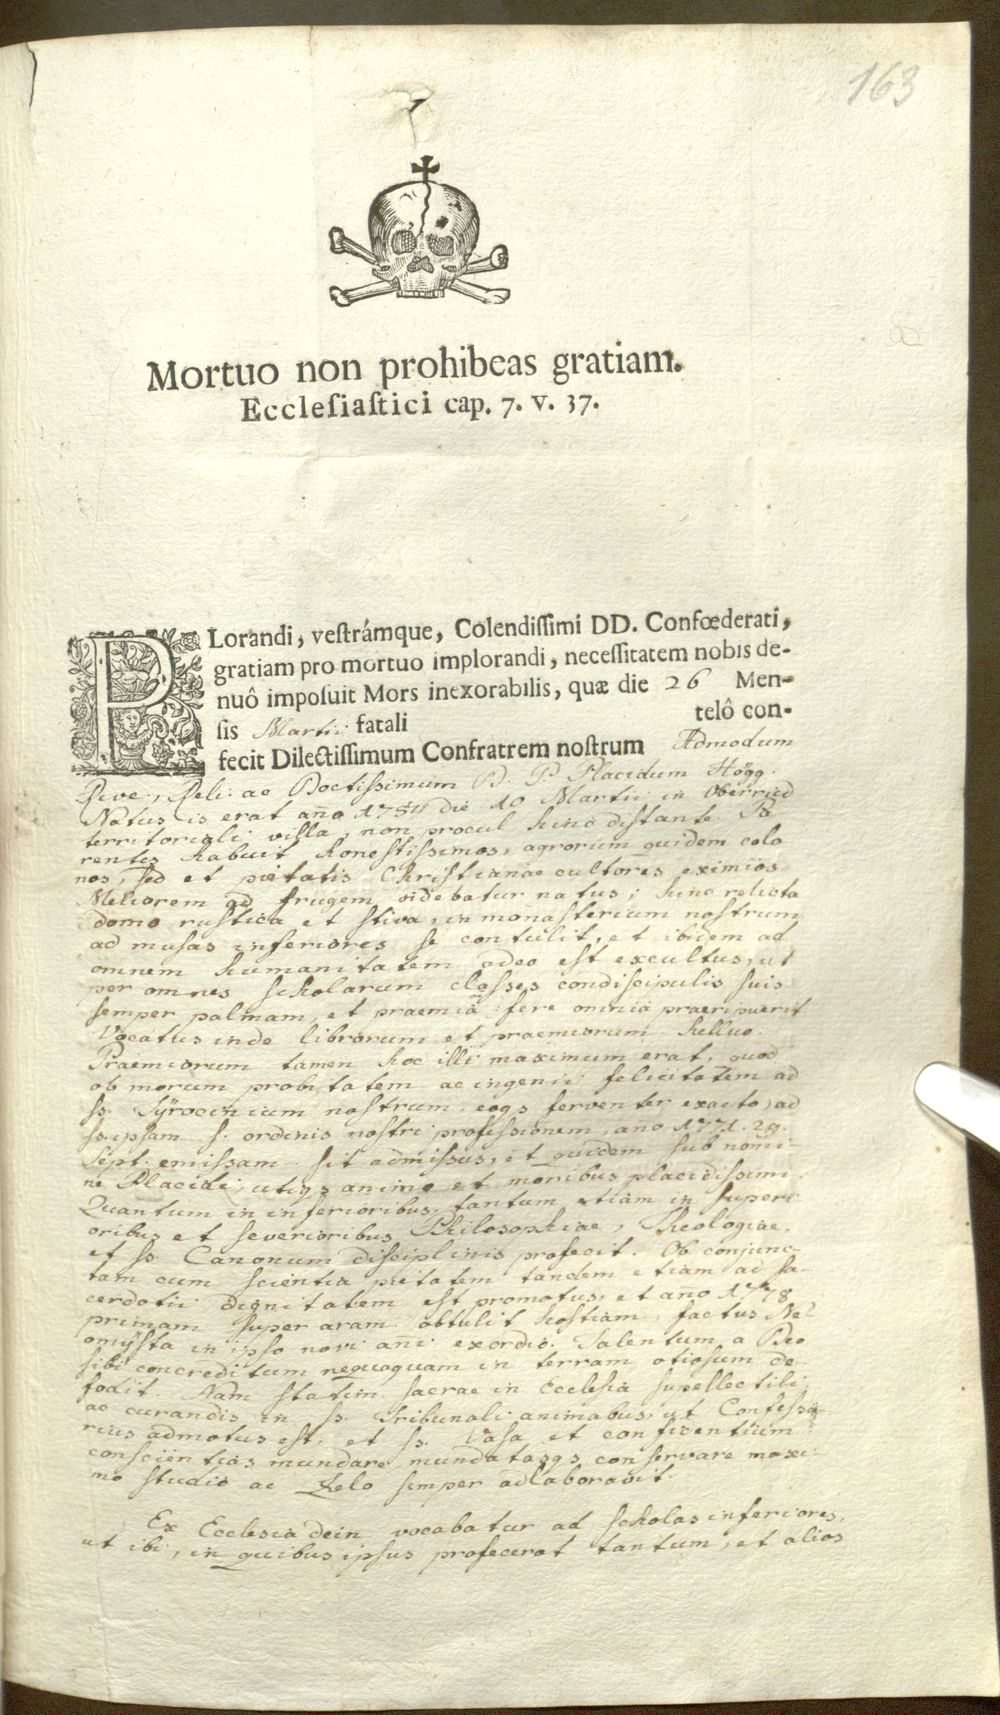 163
Mortuo non prohibeas gratiam.
Ecclesiastici cap. 7. v. 37.
PLorandi, vestrámque, Colendissimi DD. Confœderati,
gratiam pro mortuo implorandi, necessitatem nobis de-
nuô imposuit Mors inexorabilis, quæ die 26 Men-
sis Martii fatali telô con-
fecit Dilectissimum Confratrem nostrum Admodum
Reve., Reli: ac Doctissimum P. P. Placidum Högg.
Natus is erat año 1754 die 10 Martii in Oberried
territoriali villa, non procul hinc distante. Pa
rentes habuit honestissimos, agrorum quidem colo
nos, sed et pietatis Christianae cultores eximios.
Meliorem ad frugem videbatur natus; hinc relicta
domo rustica et stiva, in monasterium nostrum
ad musas inferiores se contulit, et ibidem ad
omnem humanitatem adeo est excultus, ut
per omnes scholarum classes condiscipulis suis
semper palmam, et praemia fere omnia praeripuerit
Vocatus inde librorum et praemiorum helluo.
Praemiorum tamen hoc illi maximum erat, quod
ob morum probitatem ac ingenii felicitatem ad
ss. Tÿrocinium nostrum, eoqs ferventer exacto, ad
ss. ipsam s. ordinis nostri professionem, año 1771. 29.
Sept: emissam sit admissus, et quidem sub nomi
ne Placidi, utiqs animo et moribus placidissimi.
Quantum in inferioribus, tantum etiam in superi
oribus et severioribus Philosophiae, Theologiae,
et ss. Canonum disciplinis profecit. Ob conjunc-
tam cum scientia pietatem tandem etiam ad sa-
cerdotii dignitatem est promotus, et año 1778
primam super aram obtulit hostiam, factus Ne-
omÿsta in ipso novi añi exordio. Talentum a Deo
sibi concreditum nequaquam in terram otiosum de
fodit. Nam statim sacrae in Ecclesia supellectili,
ac curandis in ss. Tribunali animabus, ut Confessa
rius admotus est, et ss. Vasa et confitentium
conscientias mundare, mundatasqs conservare maxi
mo studio ac Zelo semper adlaboravit.
Ex Ecclesia dein vocabatur ad scholas inferiores,
ut ibi, in quibus ipsus profecerat tantum, et alios